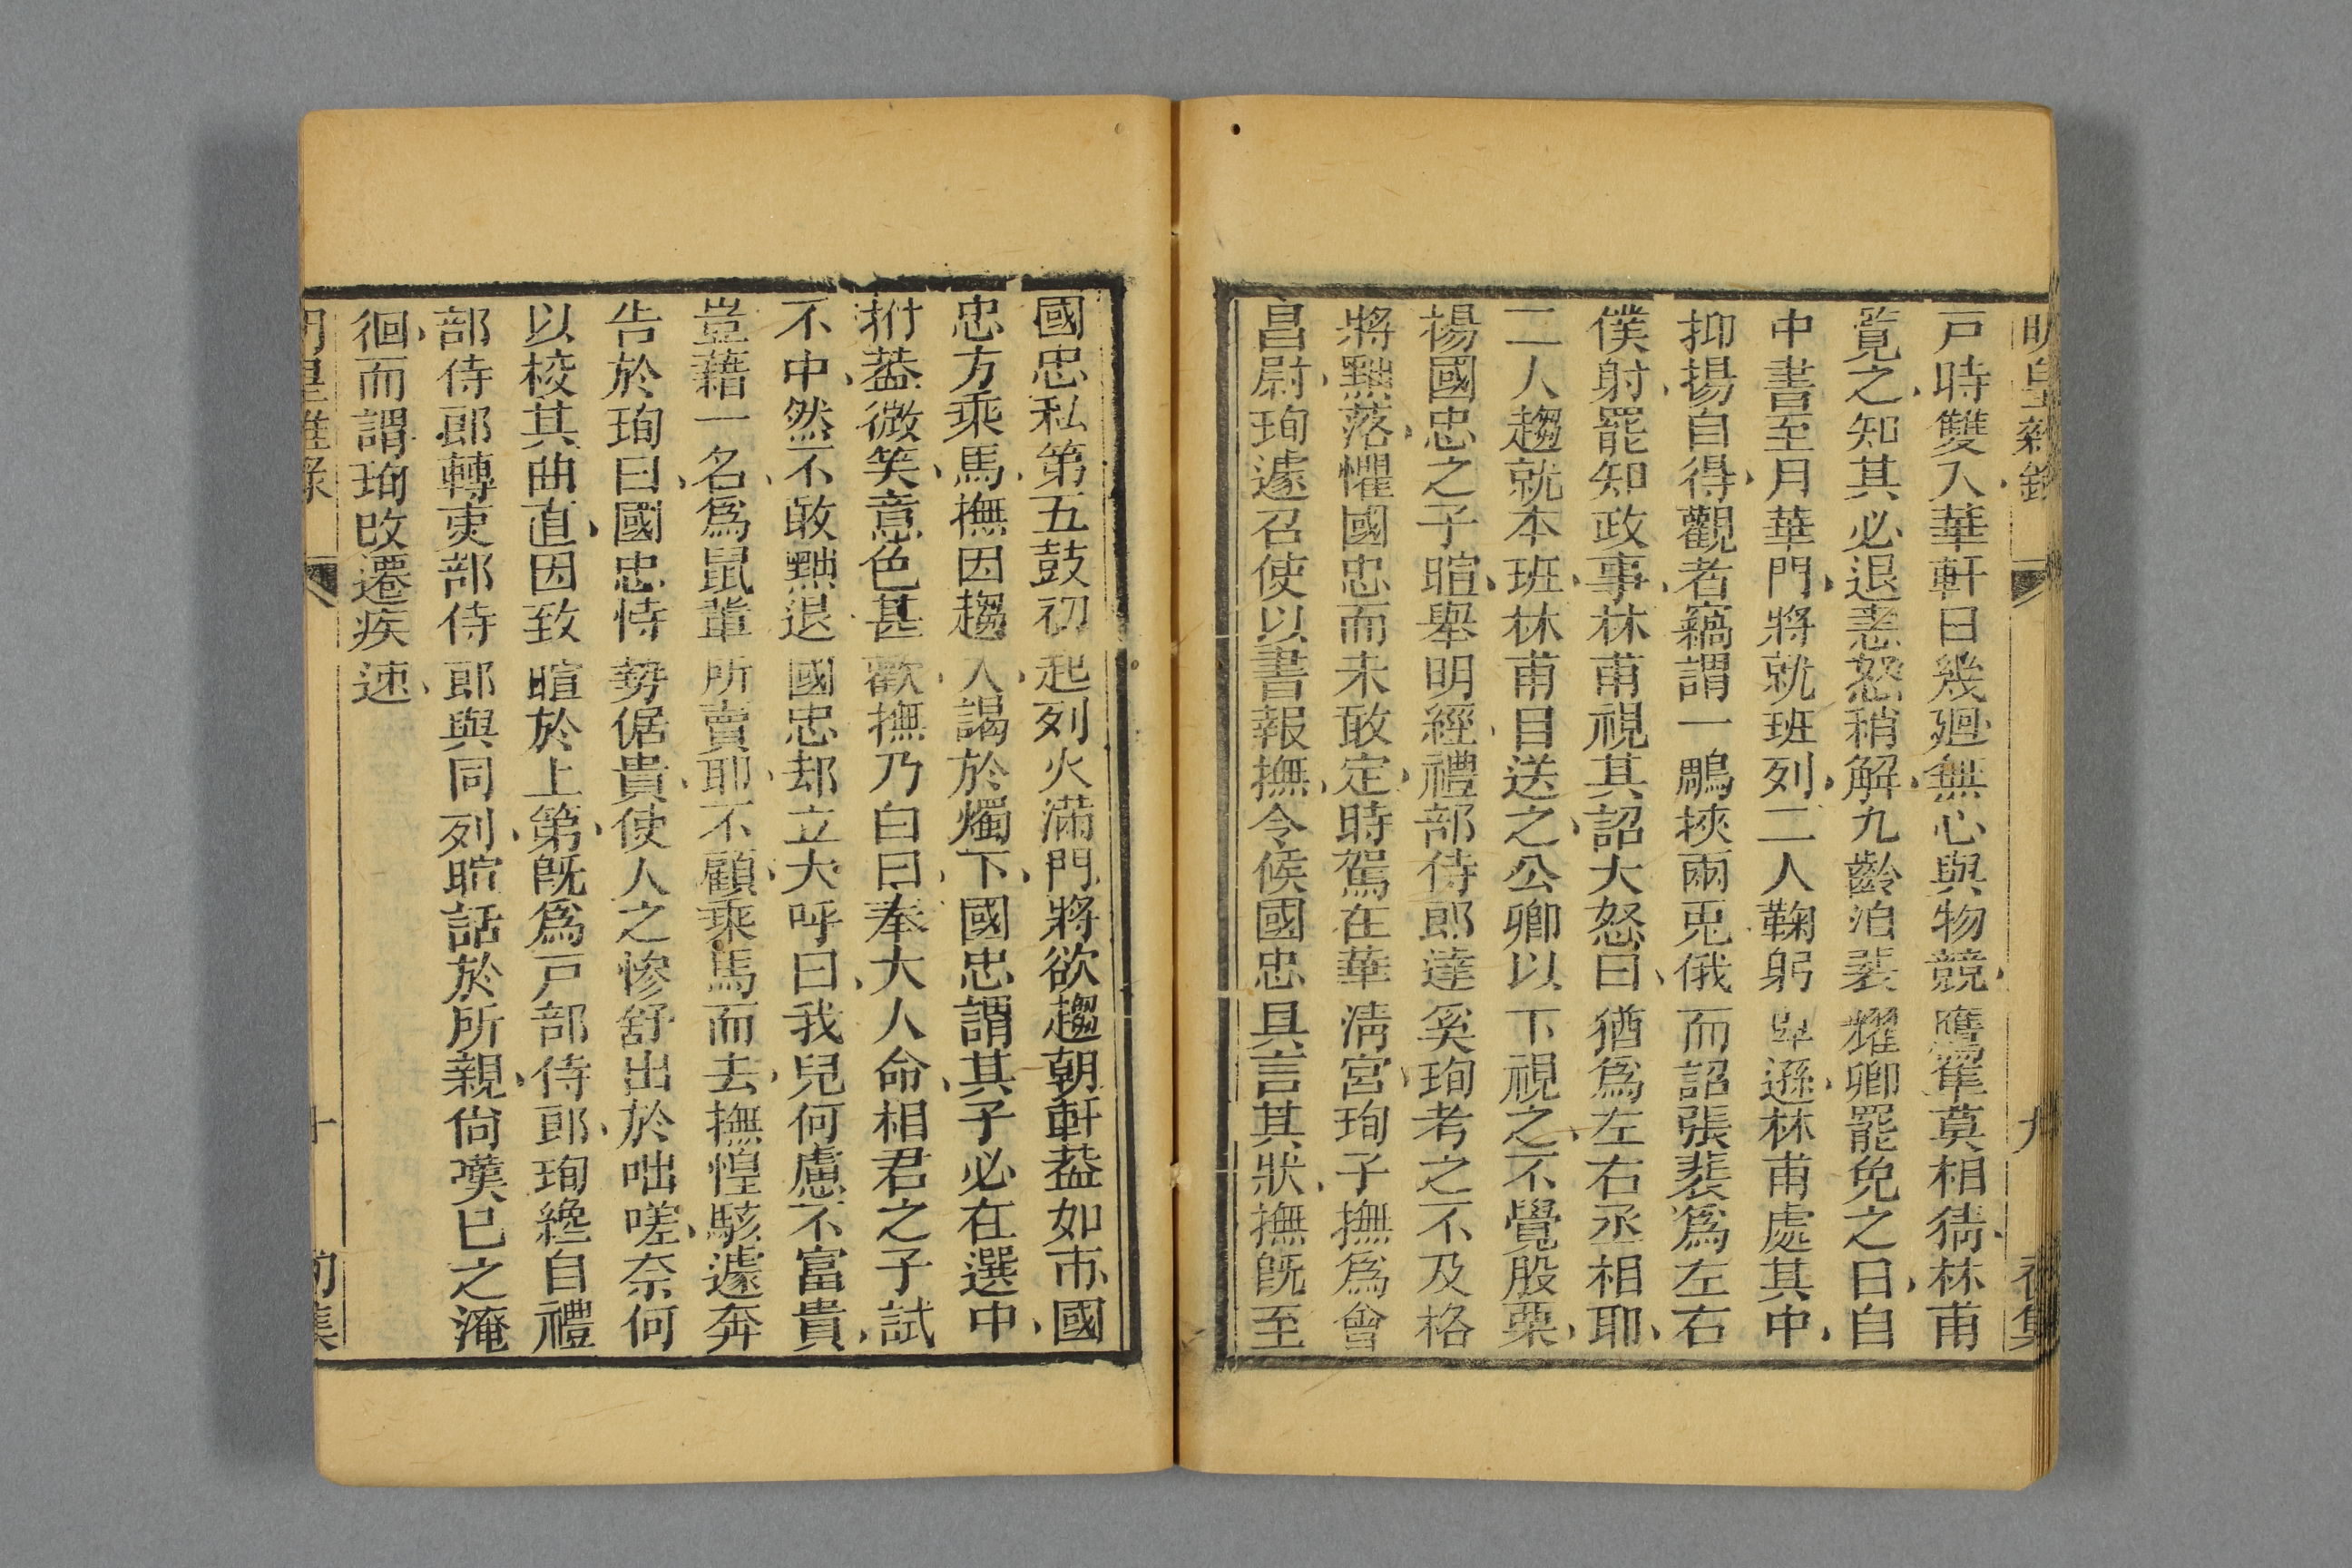 戸時雙入華軒日幾廻無心與物競鷹隼莫相猜林甫
覽之知其必退恚怒稍解九齡洎裴耀卿罷免之日自
中書至月華門將就班列二人鞠躬卑遜林甫處其中
抑揚自得觀者竊謂一鵰挾兩兎俄而詔張裴爲左右
僕射罷知政事林甫視其詔大怒曰猶爲左右丞相耶
二人趨就本班林甫目送之公卿以下視之不覺股栗
楊國忠之子暄舉明經禮部侍郎達奚珣考之不及格
將黜落懼國忠而未敢定時駕在華淸宮珣子撫爲會
昌尉珣遽召使以書報撫令候國忠具言其狀撫旣至
國忠私第五鼓初起列火滿門將欲趨朝軒葢如市國
忠方乘馬撫因趨入謁於燭下國忠謂其子必在選中
撫葢微笑意色甚歡撫乃白曰奉大人命相君之子試
不中然不敢黜退國忠却立大呼曰我兒何慮不富貴
豈藉一名爲鼠輩所賣耶不顧乘馬而去撫惶駭遽奔
告於珣曰國忠恃勢倨貴使人之慘舒出於咄嗟奈何
以校其曲直因致暄於上第旣爲戸部侍郎珣纔自禮
部侍郎轉吏部侍郎與同列暄話於所親尙嘆已之淹
徊而謂珣改遷疾速